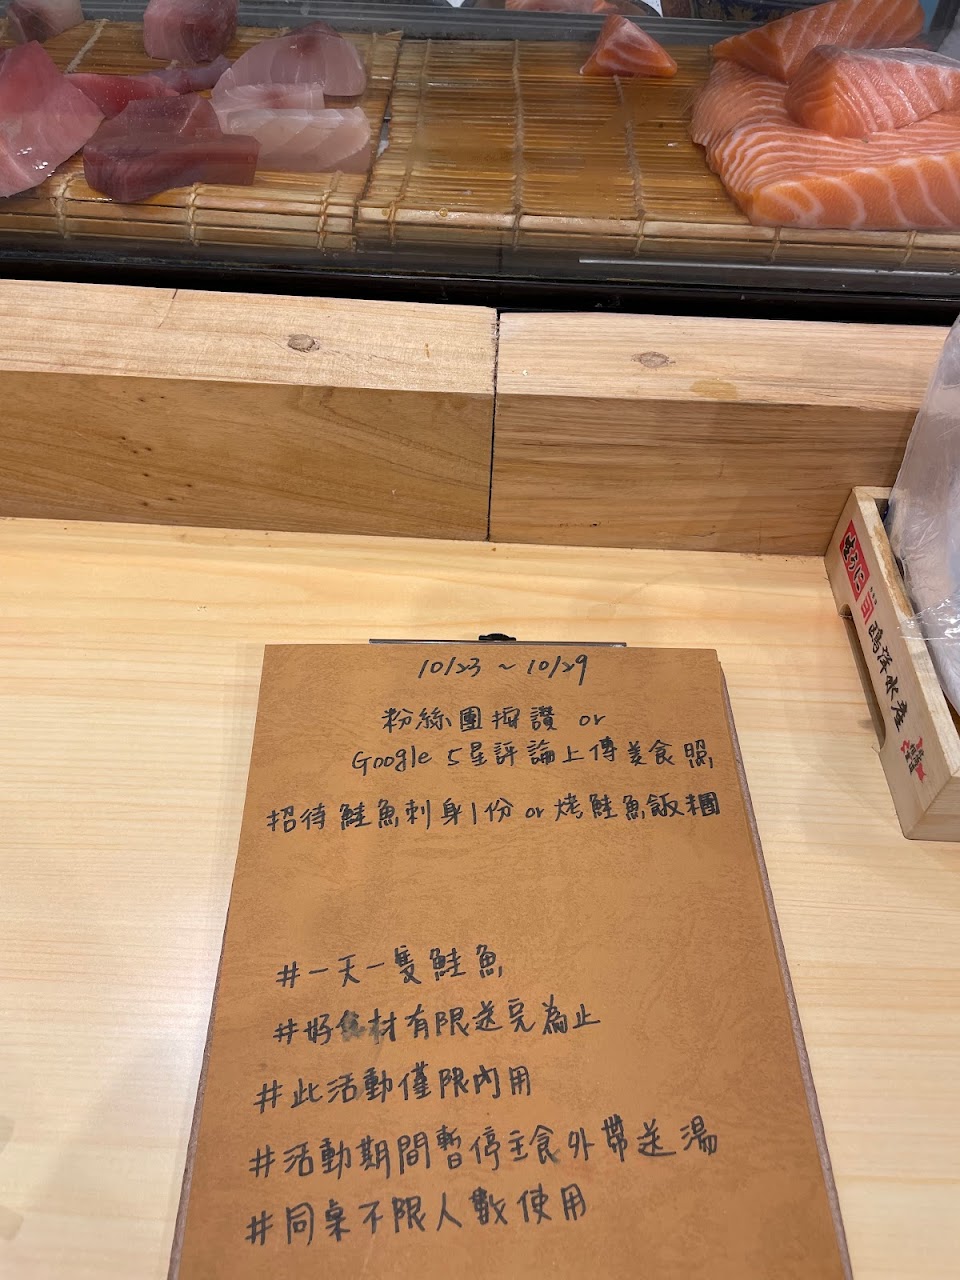 10/23 ~ 10/29
粉絲團按讚 or
Google 5星評論上傳美食照
招待鮭魚刺身1份 or 烤鮭魚飯糰
#一天一隻鮭魚
#好食材有限送完為止
#此活動僅限內用
#活動期間暫停主食外帶送湯
#同桌不限人數使用